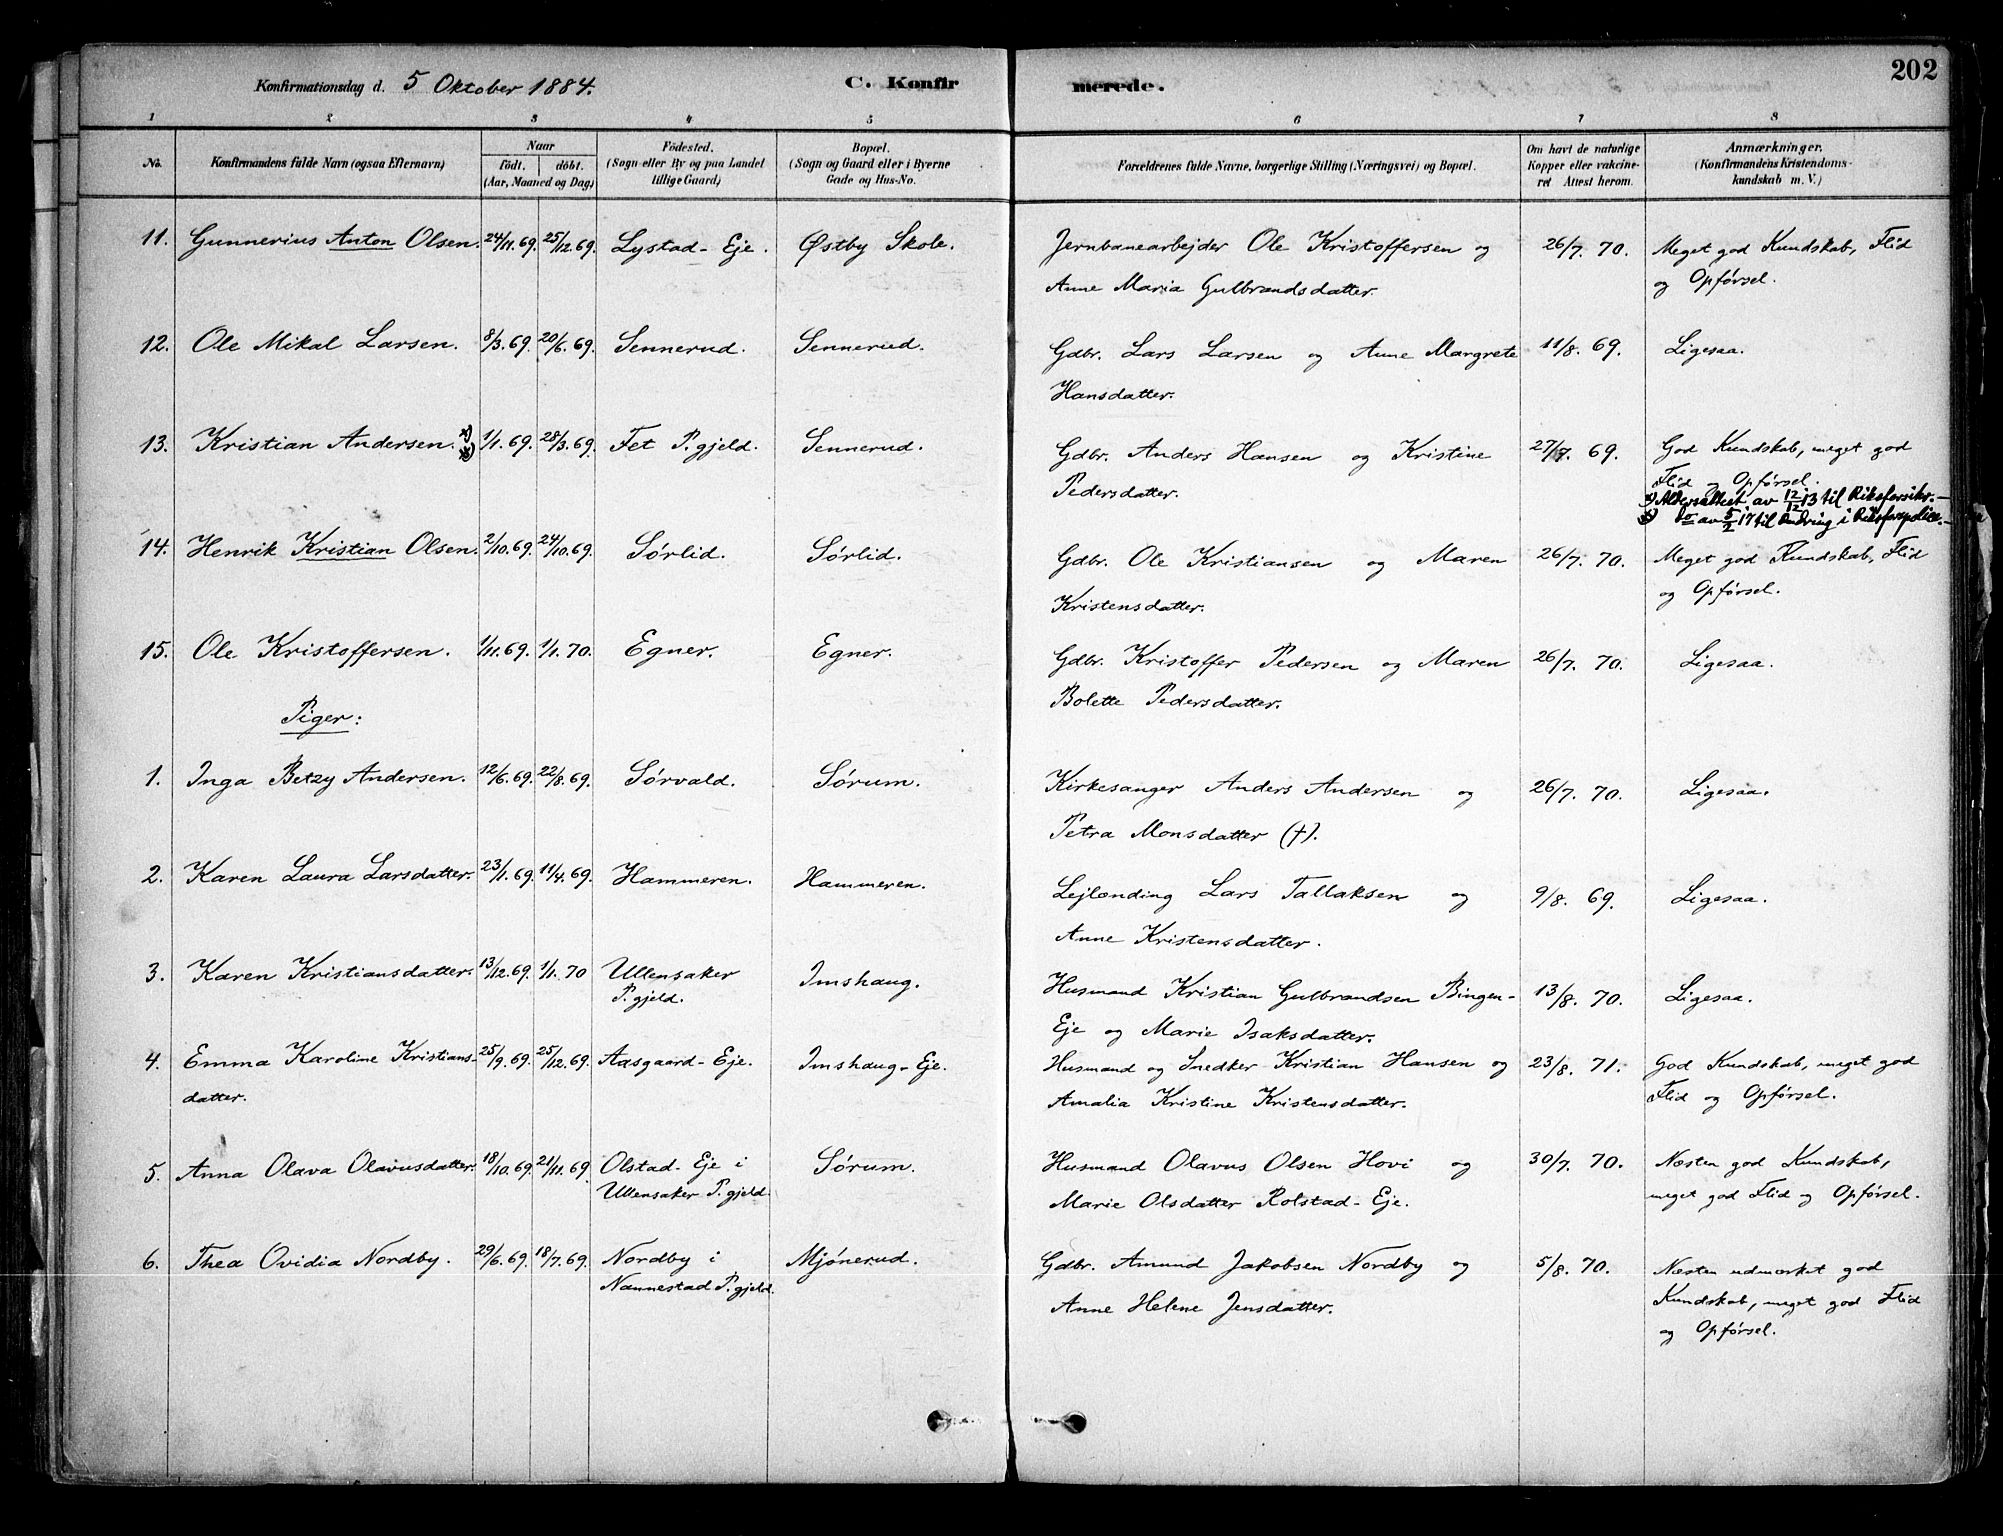 202
Konfirmationsdag d. 5 Oktober 1884.
C. Konfirmerede.
1 2 3 4 5 6 7 8
No.
Konfirmandens fulde Navn (ogsaa Efternavn)
Naar
födt. döbt.
(Aar, Maaned og Dag)
Födested.
(Sogn eller By og paa Landet
tillige Gaard)
Bopæl.
(Sogn og Gaard eller i Byerne
Gade og Hus-No.
Forældrenes fulde Navne, borgerlige Stilling (Næringsvei) og Bopæl.
Om havt de naturlige
Kopper eller vakcine-
ret Attest herom.
Anmærkninger.
(Konfirmandens Kristendoms-
kundskab m. V.)
11. Gunnerius Anton Olsen. 24/11.69. 25/12.69. Lystad-Eje. Østby Skole. Jernbanearbejder Ole Kristoffersen og 26/7. 70. Meget god Kundskab, Flid
Anne Maria Gulbrandsdatter. og Opførsel.
12. Ole Mikal Larsen. 8/3.69. 20/6.69. Sennerud. Sennerud. Gdbr. Lars Larsen og Anne Margrete 11/8. 69. Ligesaa.
Hansdatter.
13. Kristian Andersen. x) 1/1.69. 28/3.69. Fet P.gjeld. Sennerud. Gdbr. Anders Hansen og Kristine 27/7. 69. God Kundskab, meget god
Pedersdatter. Flid og Opførsel.
x) Aldersattest av 12/12 13 til Riksforsikr.-
do av 5/2 17 til Andring i
14. Henrik Kristian Olsen. 2/10.69. 24/10.69. Sørlid. Sørlid. Gdbr. Ole Kristiansen og Maren 26/7. 70. Meget god Kundskab, Flid
Kristensdatter. og Opførsel.
15. Ole Kristoffersen. 1/11.69. 1/1.70. Egner. Egner. Gdbr. Kristoffer Pedersen og Maren 26/7. 70. Ligesaa.
Bolette Pedersdatter.
Piger:
1. Inga Betzy Andersen. 12/6.69. 22/8.69. Sørvald. Sørum. Kirkesanger Anders Andersen og 26/7. 70. Ligesaa.
Petra Monsdatter (†).
2. Karen Laura Larsdatter. 23/1.69. 11/4.69. Hammeren. Hammeren. Lejlænding Lars Tallaksen og 9/8. 69. Ligesaa.
Anne Kristensdatter.
3. Karen Kristiansdatter. 13/12.69. 1/1.70 Ullensaker Imshaug. Husmand Kristian Gulbrandsen Bingen- 13/8. 70. Ligesaa.
P.gjeld. Eje og Marie Isaksdatter.
4. Emma Karoline Kristians- 25/9.69. 25/12.69. Aasgaard-Eje. Imshaug-Eje. Husmand og Snedker Kristian Hansen og 23/8. 71. God Kundskab, meget god
datter. Amalia Kristine Kristensdatter. Flid og Opførsel.
5. Anna Olava Olavusdatter. 18/10.69. 21/11.69. Olstad-Eje i Sørum. Husmand Olavus Olsen Hovi og 30/7. 70. Næsten god Kundskab,
Ullensaker P.gjeld. Marie Olsdatter Rolstad-Eje. meget god Flid og Opførsel.
6. Thea Ovidia Nordby. 29/6.69. 18/7.69. Nordby i Mjønerud. Gdbr. Amund Jakobsen Nordby og 5/8. 70. Næsten udmærket god
Nannestad P.gjeld. Anne Helene Jensdatter. Kundskab, meget god Flid
og Opførsel.